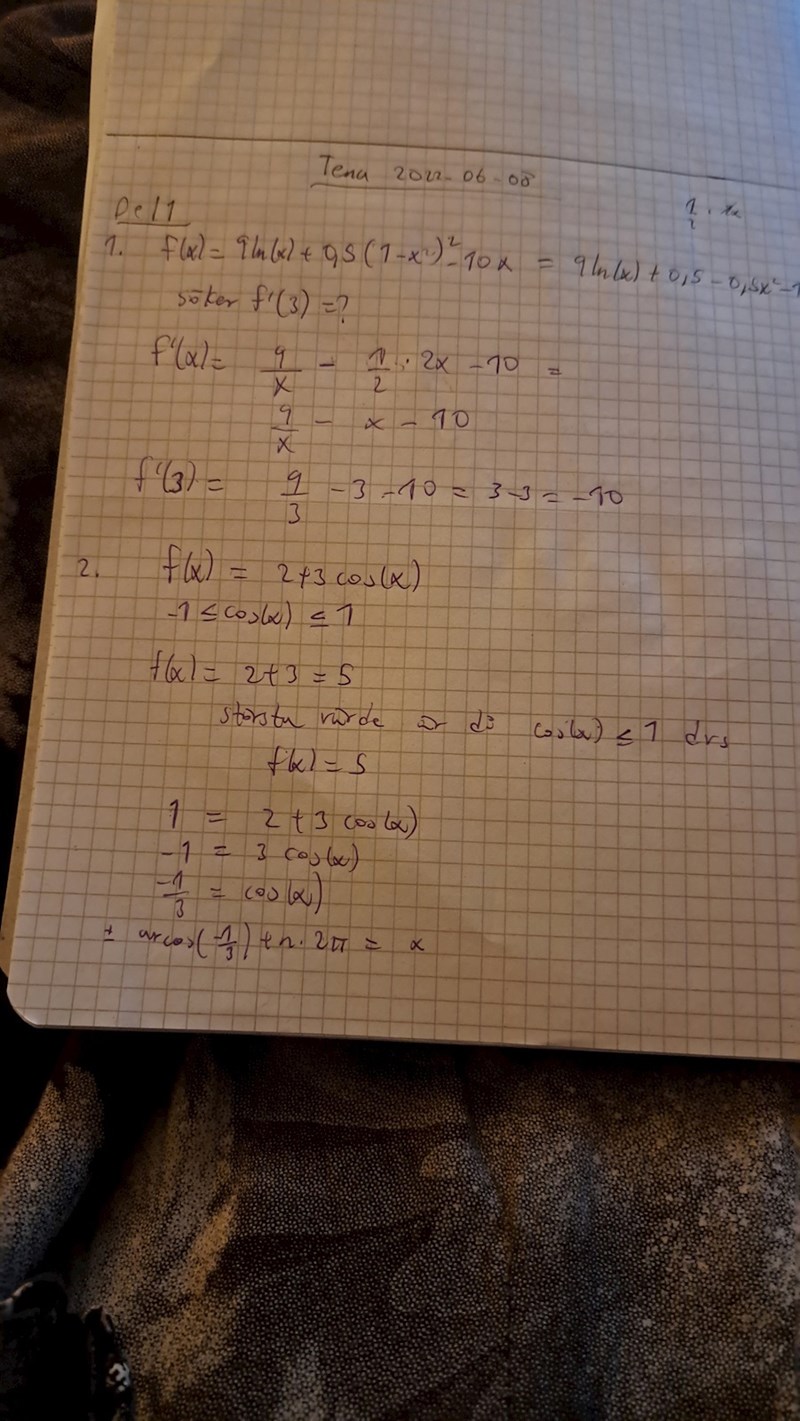 Tenta 2022-06-08
Del 1
1. f(x) = 9 ln(x) + 0,5 (1-x²)² - 10x = 9 ln(x) + 0,5 - 0,5x² - 1
söker f'(3) = ?
f'(x) = 9/x - 1/2 · 2x - 10 =
9/x - x - 10
f'(3) = 9/3 - 3 - 10 = 3-3 = -10
2. f(x) = 2+3 cos(x)
-1 ≤ cos(x) ≤ 1
f(x) = 2+3 = 5
största värde är då cos(x) ≤ 1 dvs
f(x) = 5
1 = 2+3 cos(x)
-1 = 3 cos(x)
-1/3 = cos(x)
± arcos(-1/3) + n · 2π = x